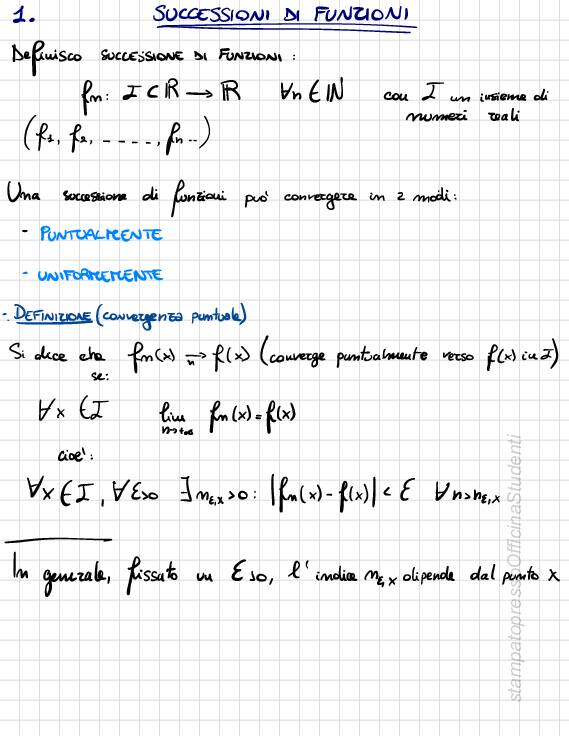 1. SUCCESSIONI DI FUNZIONI
Definisco SUCCESSIONE DI FUNZIONI :
fn: I ⊂ ℝ → ℝ ∀n ∈ ℕ con I un insieme di
numeri reali
(f1, f2, - - - - ., fn..)
Una successione di funzioni può convergere in 2 modi:
- PUNTUALMENTE
- UNIFORMEMENTE
-. DEFINIZIONE (convergenza puntuale)
Si dice che fn(x) →n f(x) (converge puntualmente verso f(x) in I)
se:
∀x ∈ I lim n→+∞ fn(x) = f(x)
cioè:
∀x ∈ I, ∀ε>0 ∃ nε,x >0 : |fn(x) - f(x)| < ε ∀n>nε,x
In generale, fissato un ε>0, l'indice nε,x dipende dal punto x
stampatopressoOfficinaStudenti